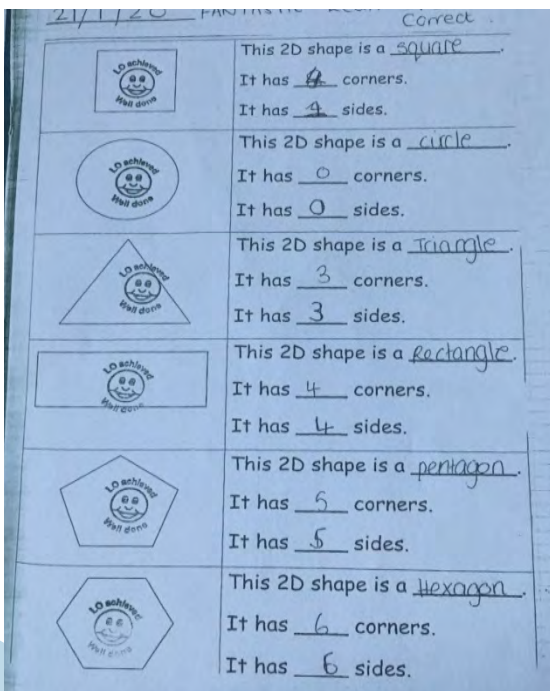 21/1/20 FANTASTIC
Correct.
LO achieved
Well done
This 2D shape is a square.
It has 4 corners.
It has 4 sides.
LO achieved
Well done
This 2D shape is a circle.
It has 0 corners.
It has 0 sides.
LO achieved
Well done
This 2D shape is a Triangle.
It has 3 corners.
It has 3 sides.
LO achieved
Well done
This 2D shape is a Rectangle.
It has 4 corners.
It has 4 sides.
LO achieved
Well done
This 2D shape is a pentagon.
It has 5 corners.
It has 5 sides.
LO achieved
Well done
This 2D shape is a Hexagon.
It has 6 corners.
It has 6 sides.